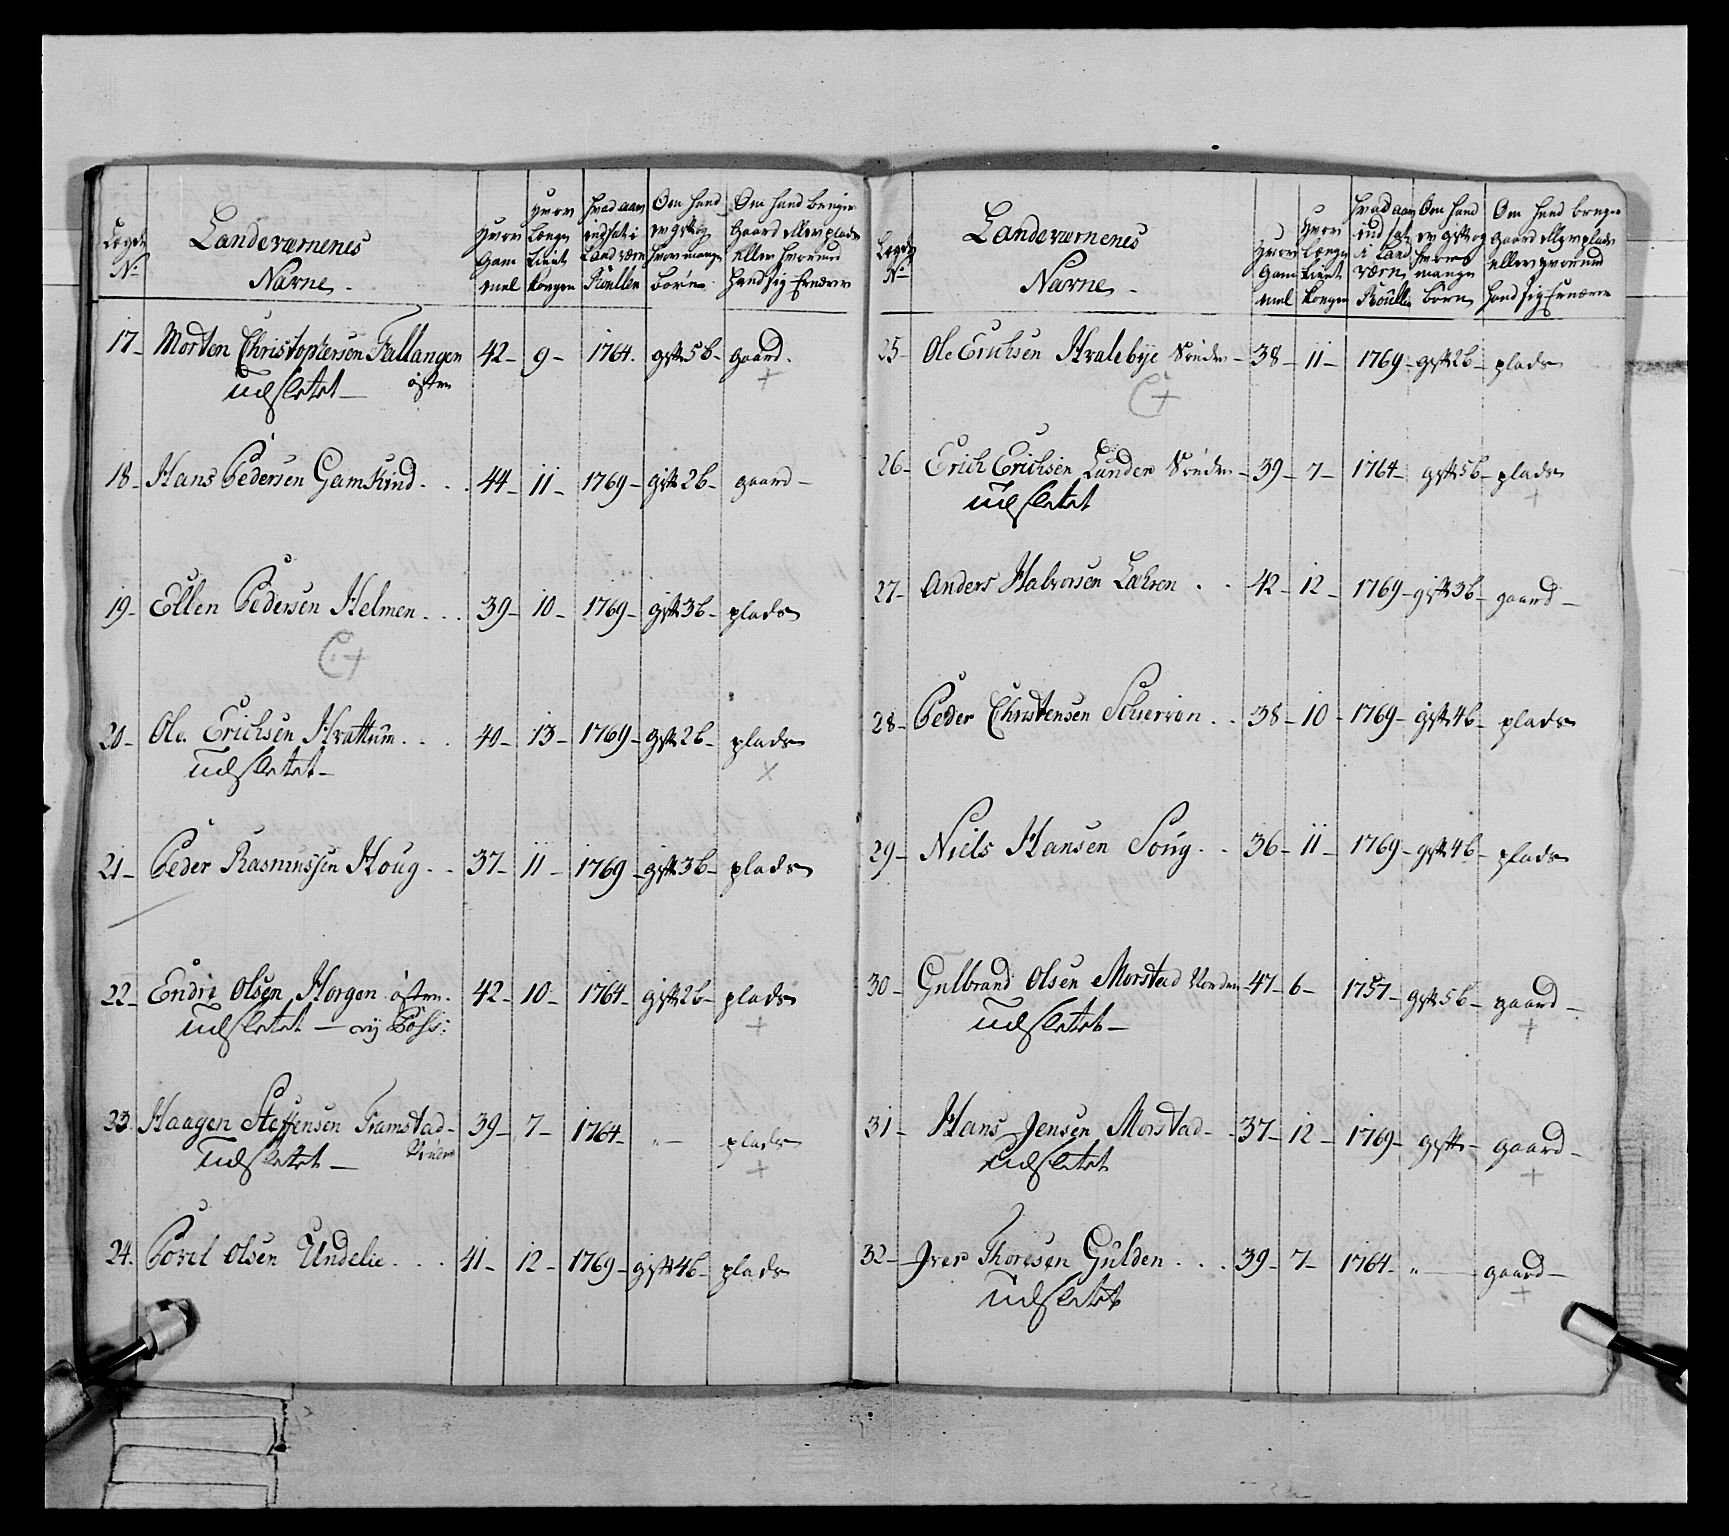 Legds No Landeværnenes Nafne Hvor Gammel Hvor Længe Tient Kongen Hvad aar indsat i Landværn Roullen Om hand er gift og hvor mange børn Om hand bruger Gaard eller plads eller hvormed hand sig Ernærer
17 Morten Christophersen Fallangen 42 9 1764 gift 5b gaard
udslettet østre
18 Hans Pedersen Gamkind 44 11 1769 gift 2b gaard
19 Ellen Pedersen Helmen 39 10 1769 gift 3b plads
20 Ole Erichsen Hvattum 40 13 1769 gift 2b plads
udslettet
21 Peder Rasmussen Houg 37 11 1769 gift 3b plads
22 Endre Olsen Horgen østre 42 10 1764 gift 2b plads
udslettet
23 Haagen Steffensen Framstad 39 7 1764 " plads
udslettet
24 Povel Olsen Undelie 41 12 1769 gift 4b plads
Legds No Landeværnenes Nafne Hvor Gammel Hvor Længe Tient Kongen Hvad aar ind sat i Land værn Roulle Om hand er gift og hvor mange børn Om hand bruger gaard eller plads eller hvormed hand sig Ernærer
25 Ole Erichsen Hvalebye Søndre 38 11 1769 gift 2b plads
26 Erich Erichsen Lunder Søndre 39 7 1764 gift 5b plads
udslettet
27 Anders Halvorsen Læhren 42 12 1769 gift 3b gaard
28 Peder Christensen Schierven 38 10 1769 gift 4b plads
29 Niels Hansen Soug 36 11 1769 gift 4b plads
30 Gulbrand Olsen Morstad Norden 47 6 1757 gift 5b gaard
udslettet
31 Hans Jensen Morstad 37 12 1769 gift gaard
udslettet
32 Iver Thoresen Gulden 39 7 1764 " gaard
udslettet